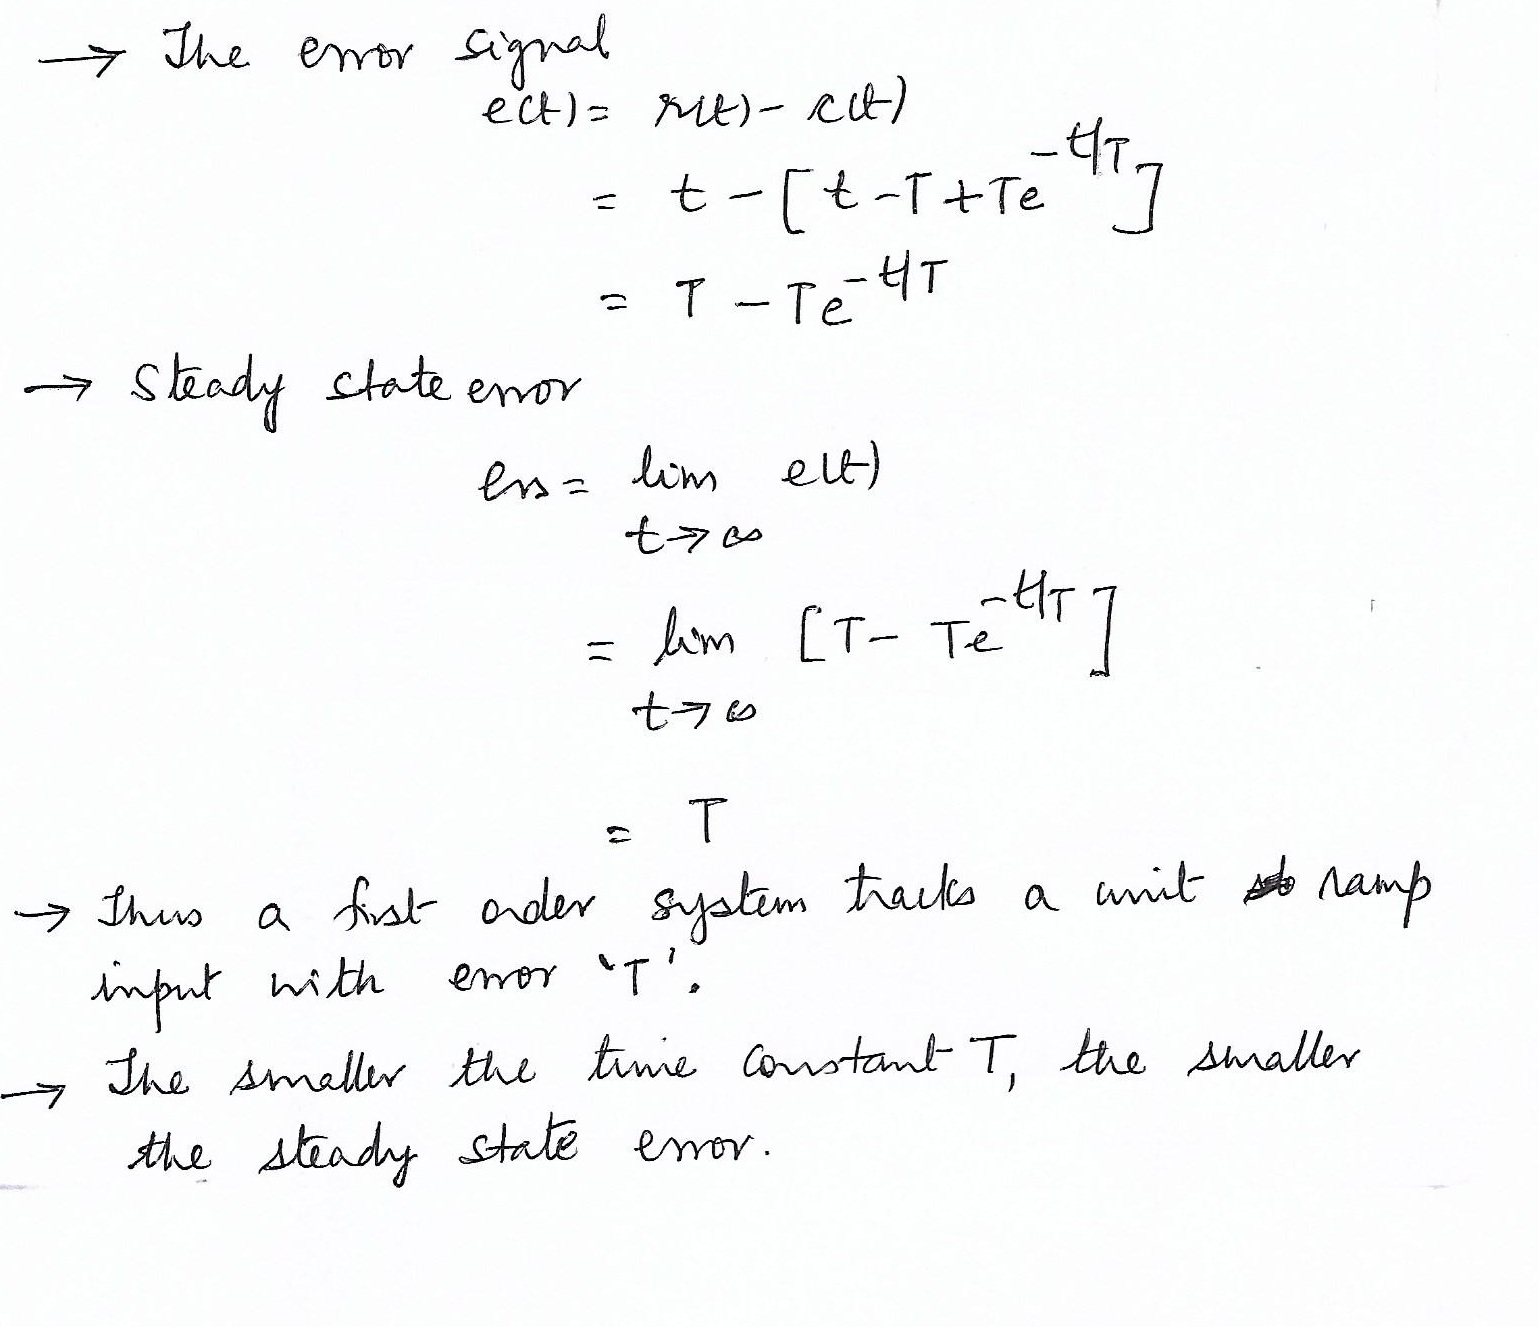 → The error signal
e(t) = r(t) - c(t)
= t - [t - T + Te^{-t/T}]
= T - Te^{-t/T}
→ Steady state error
ess = lim e(t)
t→∞
= lim [T - Te^{-t/T}]
t→∞
= T
→ Thus a first order system tracks a unit ramp
input with error 'T'.
→ The smaller the time constant T, the smaller
the steady state error.